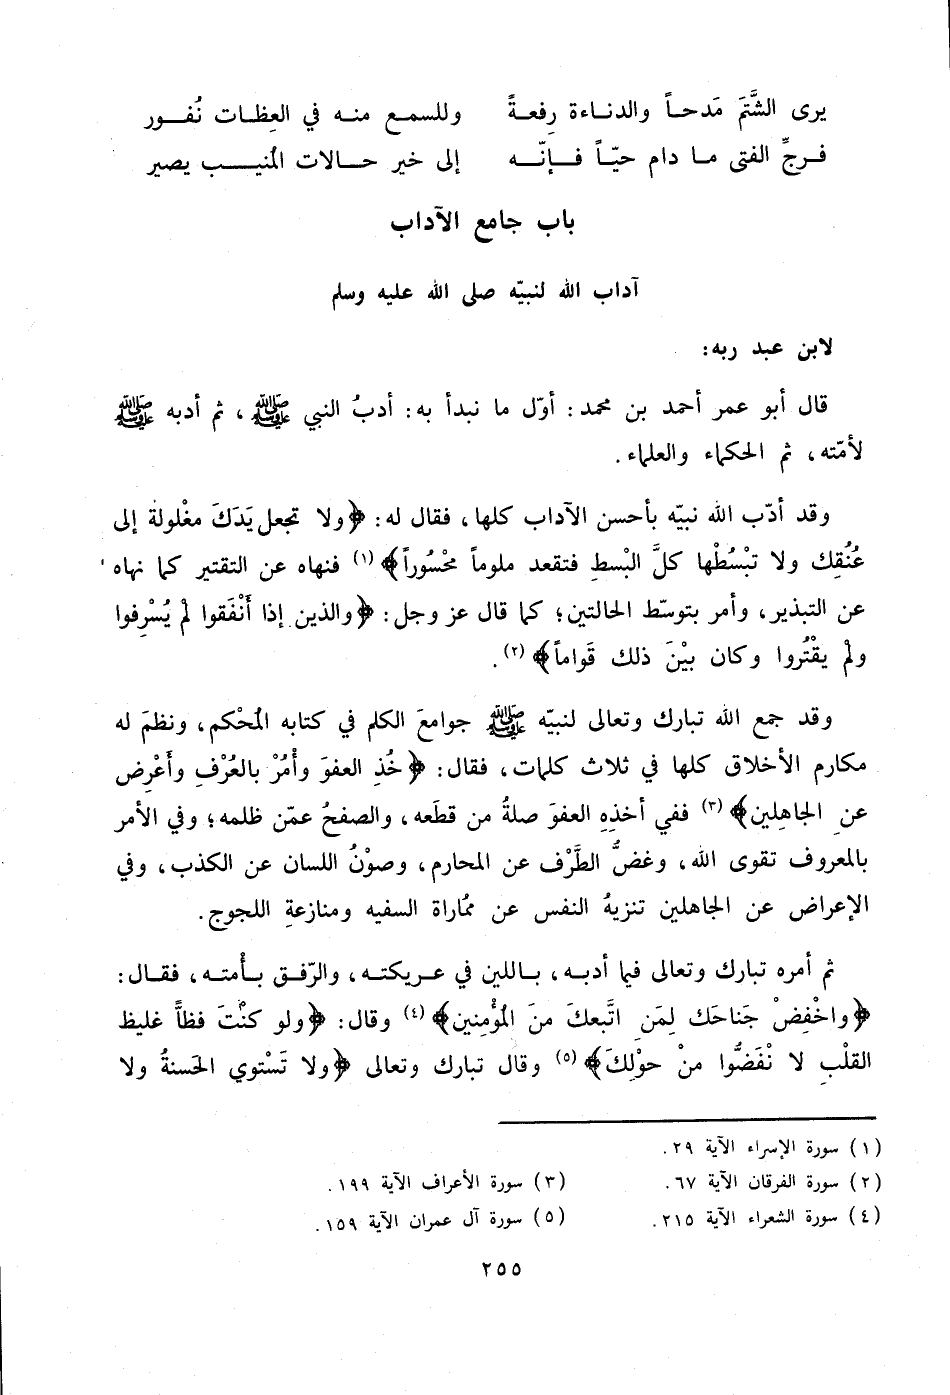 يرى الشَّتمَ مَدحـاً والدنـاءة رِفعـةً وللسمـع منـه في العِظـات نُفـور
فـرجِّ الفتى مـا دام حيّـاً فـإنّـه إلى خير حـالات المُنيـب يصير
باب جامع الآداب
آداب الله لنبيّه صلى الله عليه وسلم
لابن عبد ربه:
قال أبو عمر أحمد بن محمد: أوّل ما نبدأ به: أدبُ النبي ﷺ، ثم أدبه ﷺ
لأمّته، ثم الحكماء والعلماء.
وقد أدّب الله نبيّه بأحسن الآداب كلها، فقال له: ﴿ولا تجعل يَدَكَ مغْلولة إلى
عُنُقِك ولا تبْسُطْها كلَّ البْسطِ فتقعد ملوماً محْسُوراً﴾ (١) فنهاه عن التقتير كما نهاه
عن التبذير، وأمر بتوسّط الحالتين؛ كما قال عز وجل: ﴿والذين إذا أنْفَقوا لمْ يُسْرِفوا
ولمْ يقْتُروا وكان بيْنَ ذلك قَواماً﴾ (٢).
وقد جمع الله تبارك وتعالى لنبيّه ﷺ جوامعَ الكلم في كتابه المُحْكم، ونظمَ له
مكارم الأخلاق كلها في ثلاث كلمات، فقال: ﴿خُذِ العفوَ وأْمُرْ بالعُرْفِ وأَعْرِض
عنِ الجاهِلين﴾ (٣) ففي أخذِهِ العفوَ صلةُ من قطَعه، والصفحُ عمّن ظلمه؛ وفي الأمر
بالمعروف تقوى الله، وغضُّ الطَّرْف عن المحارم، وصوْنُ اللسان عن الكذب، وفي
الإعراض عن الجاهلين تنزيهُ النفس عن مماراة السفيه ومنازعةِ اللجوج.
ثم أمره تبارك وتعالى فيما أدبـه، بـاللين في عـريكتـه، والرّفـق بـأمتـه، فقـال:
﴿واخْفِضْ جَناحَك لِمَنِ اتَّبعكَ منَ المُؤْمِنين﴾ (٤) وقال: ﴿ولو كنْتَ فظّاً غليظ
القلْبِ لا نْفَضُّوا منْ حوْلِكَ﴾ (٥) وقال تبارك وتعالى ﴿ولا تَسْتوي الحَسنةُ ولا
(١) سورة الإسراء الآية ٢٩.
(٢) سورة الفرقان الآية ٦٧. (٣) سورة الأعراف الآية ١٩٩.
(٤) سورة الشعراء الآية ٢١٥. (٥) سورة آل عمران الآية ١٥٩.
٢٥٥